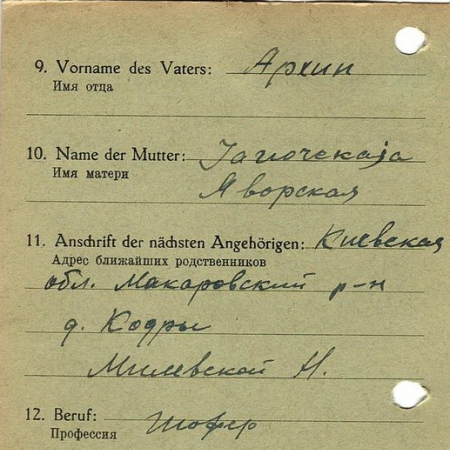 9. Vorname des Vaters: Архип
Имя отца
10. Name der Mutter:
Имя матери
Яворская
11. Anschrift der nächsten Angehörigen: Киевская
Адрес ближайших родственников
обл. Макаровский р-н
д. Кодры
Милевской Н.
12. Beruf: шофер
Профессия